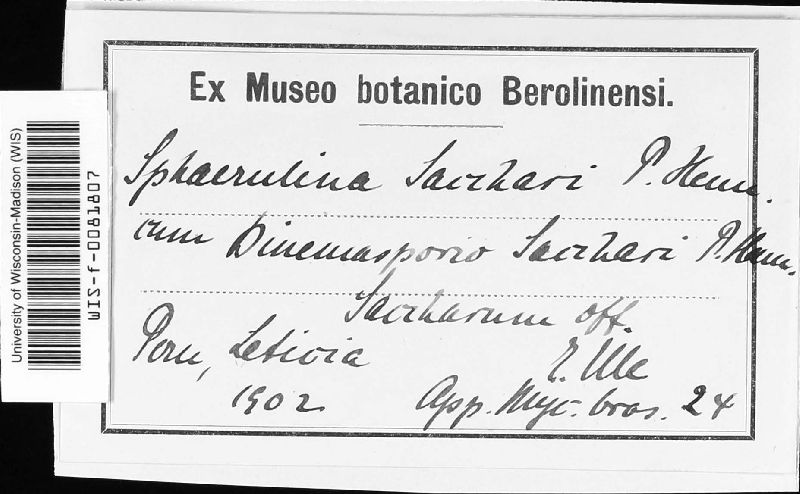 Ex Museo botanico Berolinensi.
Sphaerulina Sacchari P. Henn.
cum Dinemasporio Sacchari P. Henn.
Saccharum off.
Peru, Leticia
E. Ule
1902
App. Myc. bras. 24
University of Wisconsin-Madison (WIS)
WIS-f-0081807